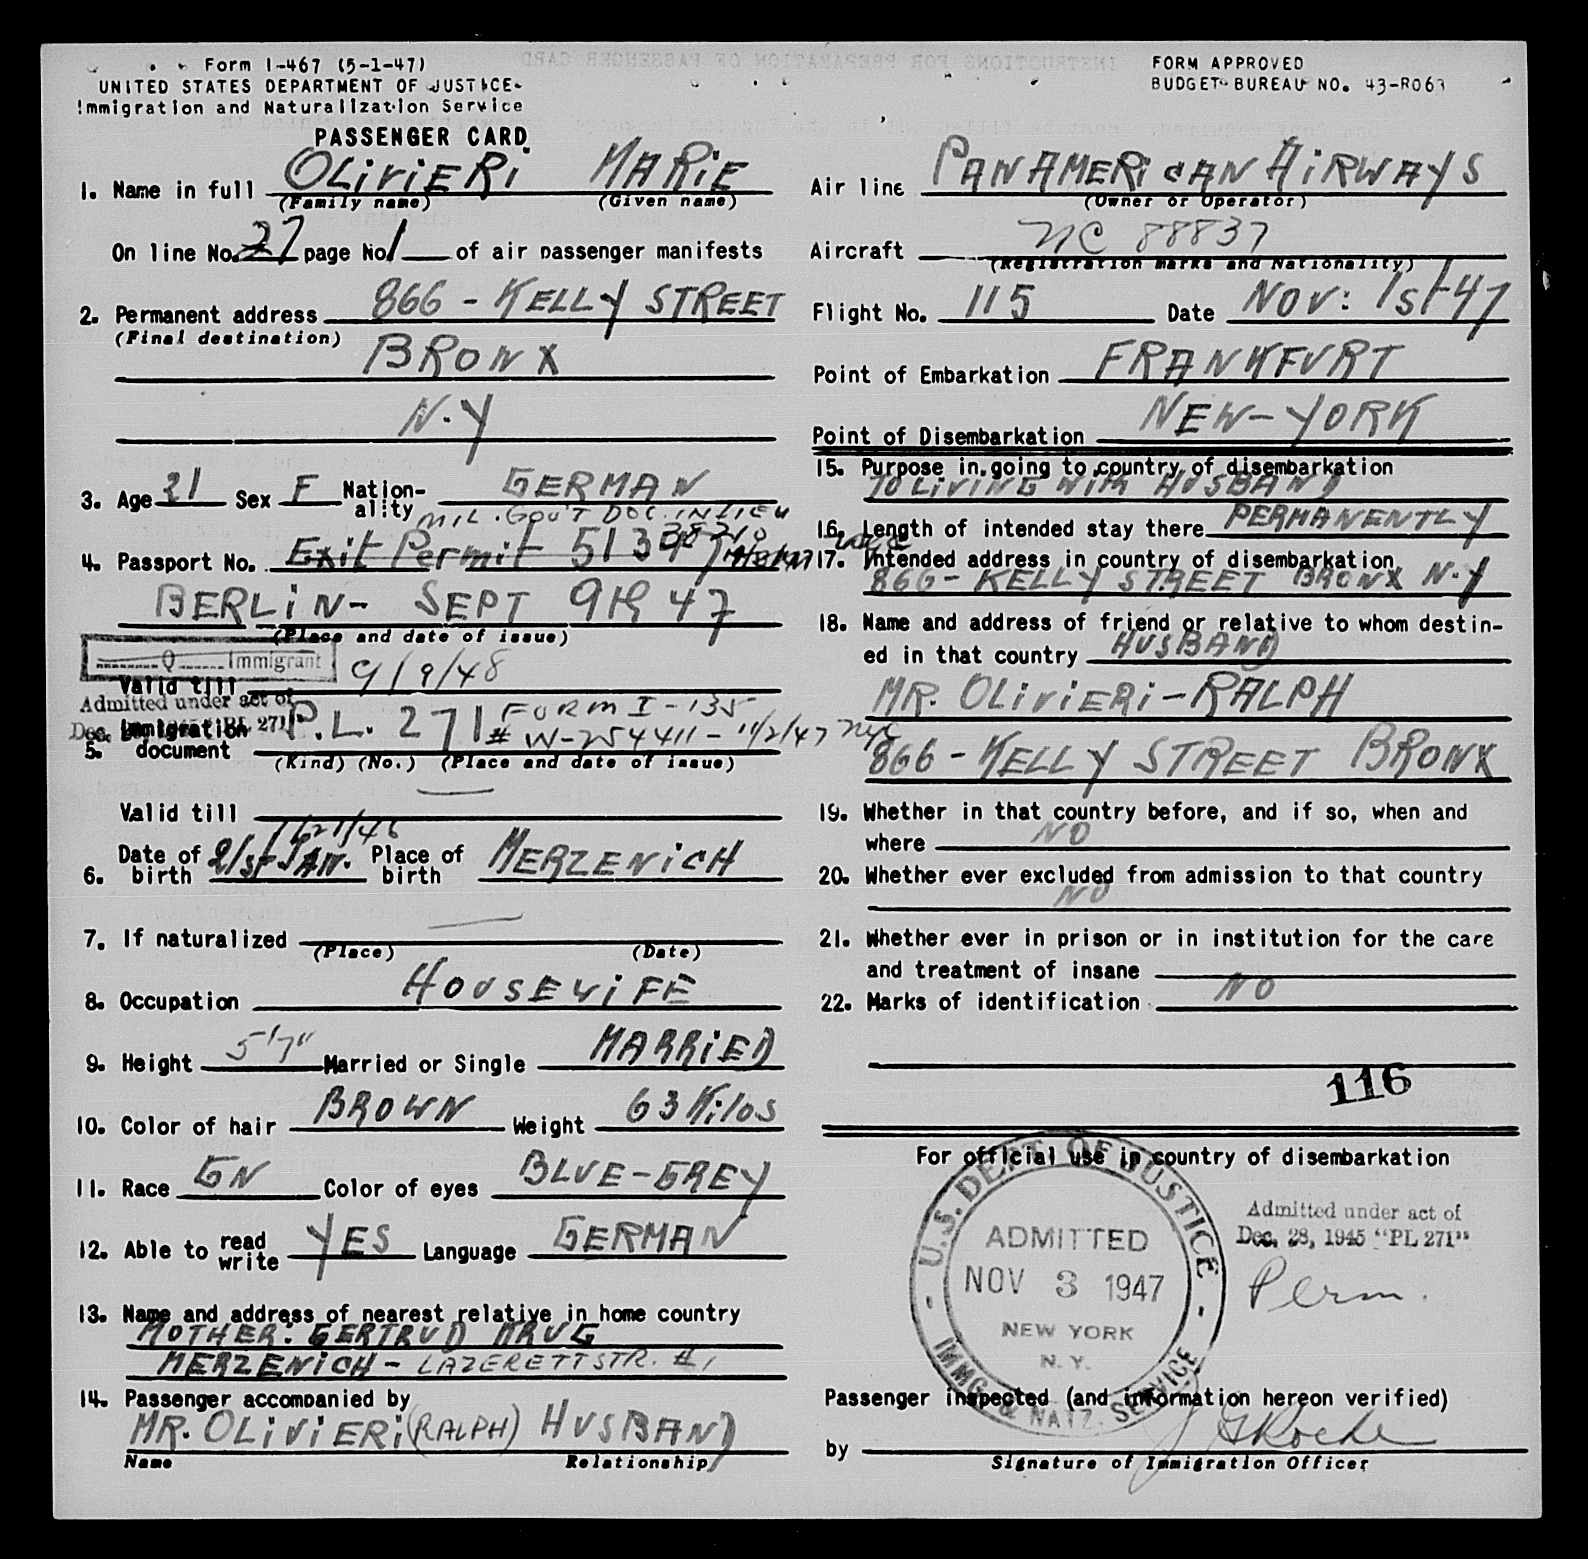 Form I-467 (5-1-47)
UNITED STATES DEPARTMENT OF JUSTICE
Immigration and Naturalization Service
PASSENGER CARD
FORM APPROVED
BUDGET BUREAU NO. 43-R063
1. Name in full OLiViERi MARiE
(Family name) (Given name)
On line No. 27 page No. 1 of air passenger manifests
2. Permanent address 866 - KELLY STREET
(Final destination)
BRONX
N.Y
3. Age 21 Sex F Nation-ality GERMAN
MIL. GOV'T DOC. IN LIEU
4. Passport No. Exit Permit
BERLiN- SEPT 9th 47
(Place and date of issue)
Q Immigrant
Valid till 9/9/48
Admitted under act of
Dec. 28, 1945 "PL 271"
5. Immigration document P.L. 271 FORM I-135
# W-254411 - 11/2/47 NYC
(Kind) (No.) (Place and date of issue)
Valid till —
6. Date of birth 21st JAN. Place of birth MERZENiCH
7. If naturalized —
(Place) (Date)
8. Occupation HOUSEWiFE
9. Height 5'7" Married or Single MARRiED
10. Color of hair BROWN Weight 63 Kilos
11. Race GN Color of eyes BLUE-GREY
12. Able to read write YES Language GERMAN
13. Name and address of nearest relative in home country
MOTHER: GERTRUD KRUG
MERZENiCH - LAZERETTSTR. #1
14. Passenger accompanied by
MR. OLiViERi (RALPH) HUSBAND
Name Relationship
Air line PAN AMERiCAN AiRWAYS
(Owner or Operator)
Aircraft NC 88837
(Registration marks and Nationality)
Flight No. 115 Date NOV: 1st 47
Point of Embarkation FRANKFURT
Point of Disembarkation NEW-YORK
15. Purpose in going to country of disembarkation
TO LiViNG WiTH HUSBAND
16. Length of intended stay there PERMANENTLY
17. Intended address in country of disembarkation
866 - KELLY STREET BRONX N.Y
18. Name and address of friend or relative to whom destin-
ed in that country HUSBAND
MR. OLiViERi - RALPH
866 - KELLY STREET BRONX
19. Whether in that country before, and if so, when and
where NO
20. Whether ever excluded from admission to that country
NO
21. Whether ever in prison or in institution for the care
and treatment of insane
22. Marks of identification NO
116
For official use in country of disembarkation
U.S. DEPT. OF JUSTICE
ADMITTED
NOV 3 1947
NEW YORK
N. Y.
IMMG. & NATZ. SERVICE
Admitted under act of
Dec. 28, 1945 "PL 271"
Perm.
Passenger inspected (and information hereon verified)
by
Signature of Immigration Officer